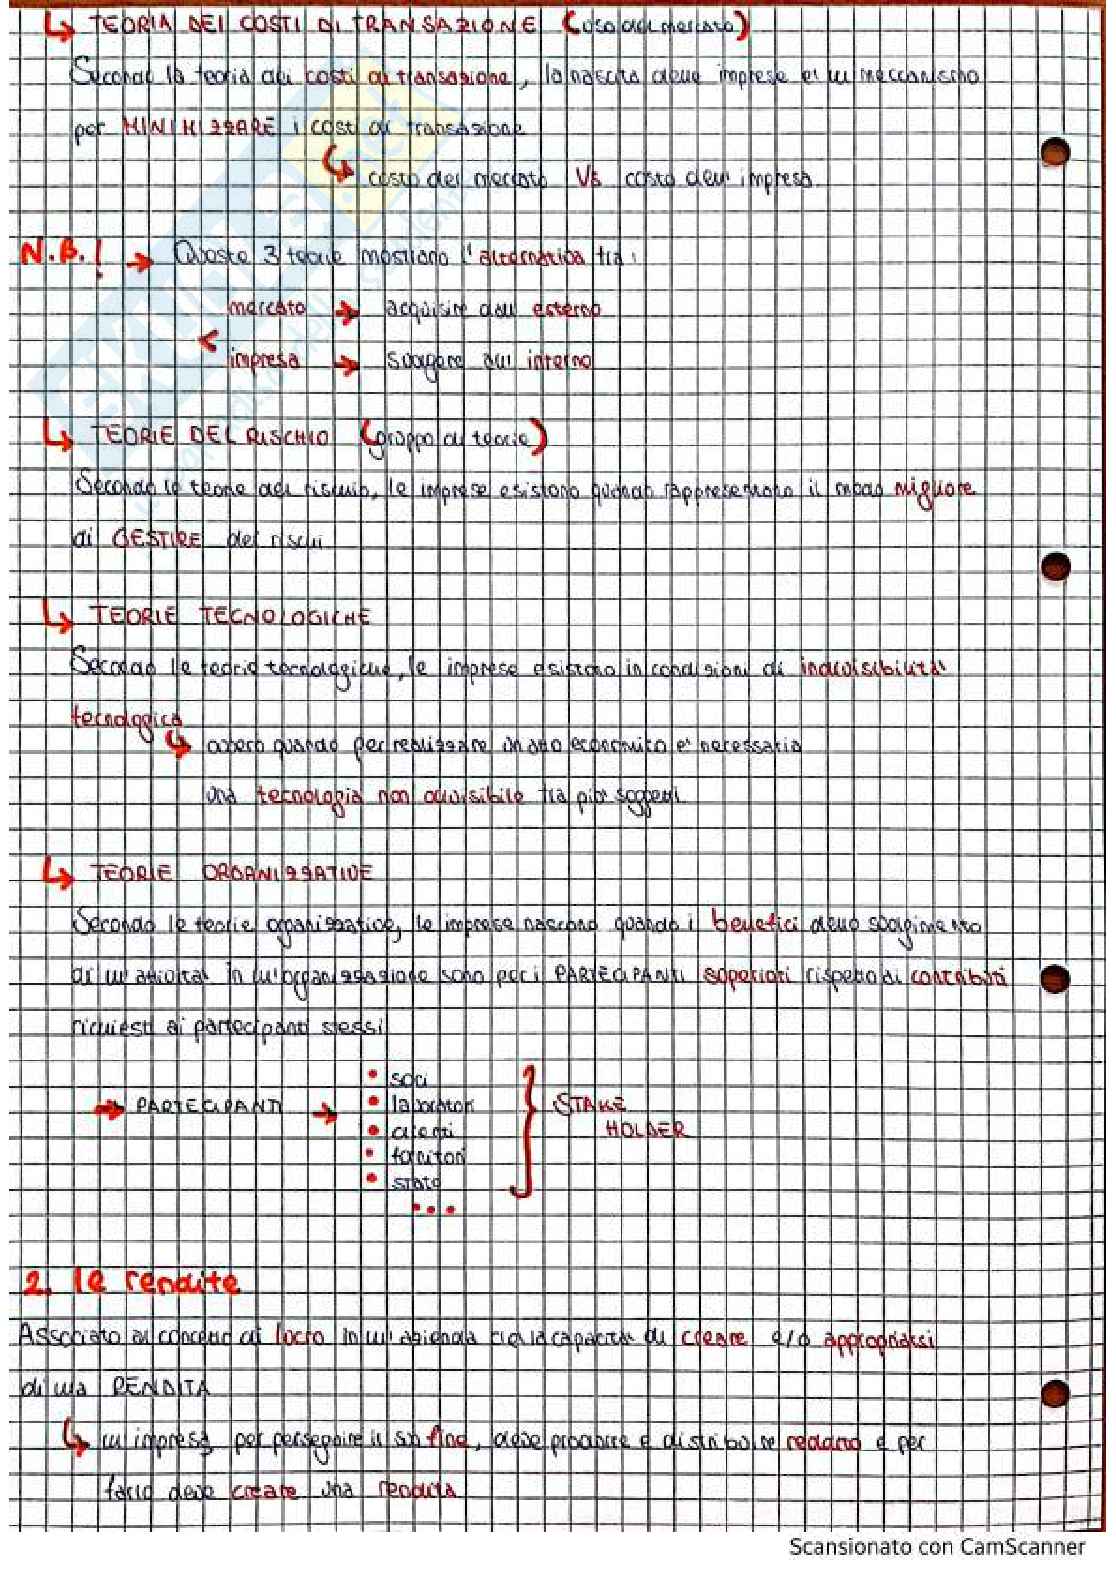 ↳ TEORIA DEI COSTI DI TRANSAZIONE (uso del mercato)
Secondo la teoria dei costi di transazione, la nascita delle imprese e' un meccanismo
per MINIMIZZARE i costi di transazione
↳ costo del mercato Vs costo dell'impresa
N.B.! → Queste 3 teorie mostrano l'alternativa tra:
mercato → acquisire dall'esterno
<
impresa → svolgere all'interno
↳ TEORIE DEL RISCHIO (gruppo di teorie)
Secondo le teorie del rischio, le imprese esistono quando rappresentano il modo migliore
di GESTIRE dei rischi
↳ TEORIE TECNOLOGICHE
Secondo le teorie tecnologiche, le imprese esistono in condizioni di indivisibilità
tecnologica
↳ ovvero quando per realizzare un atto economico e' necessaria
una tecnologia non divisibile tra piu' soggetti
↳ TEORIE ORGANIZZATIVE
Secondo le teorie organizzative, le imprese nascono quando i benefici dello svolgimento
di un'attivita' in un'organizzazione sono per i PARTECIPANTI superiori rispetto ai contributi
richiesti ai partecipanti stessi
→ PARTECIPANTI →
• soci
• lavoratori
• clienti
• fornitori
• stato
...
} STAKE
HOLDER
2. le rendite
Associato al concetto di lucro in un'azienda c'e' la capacita' di creare e/o appropriarsi
di una RENDITA
↳ un'impresa, per perseguire il suo fine, deve produrre e distribuire reddito e per
farlo deve creare una rendita
SKUOLA.net
Scansionato con CamScanner